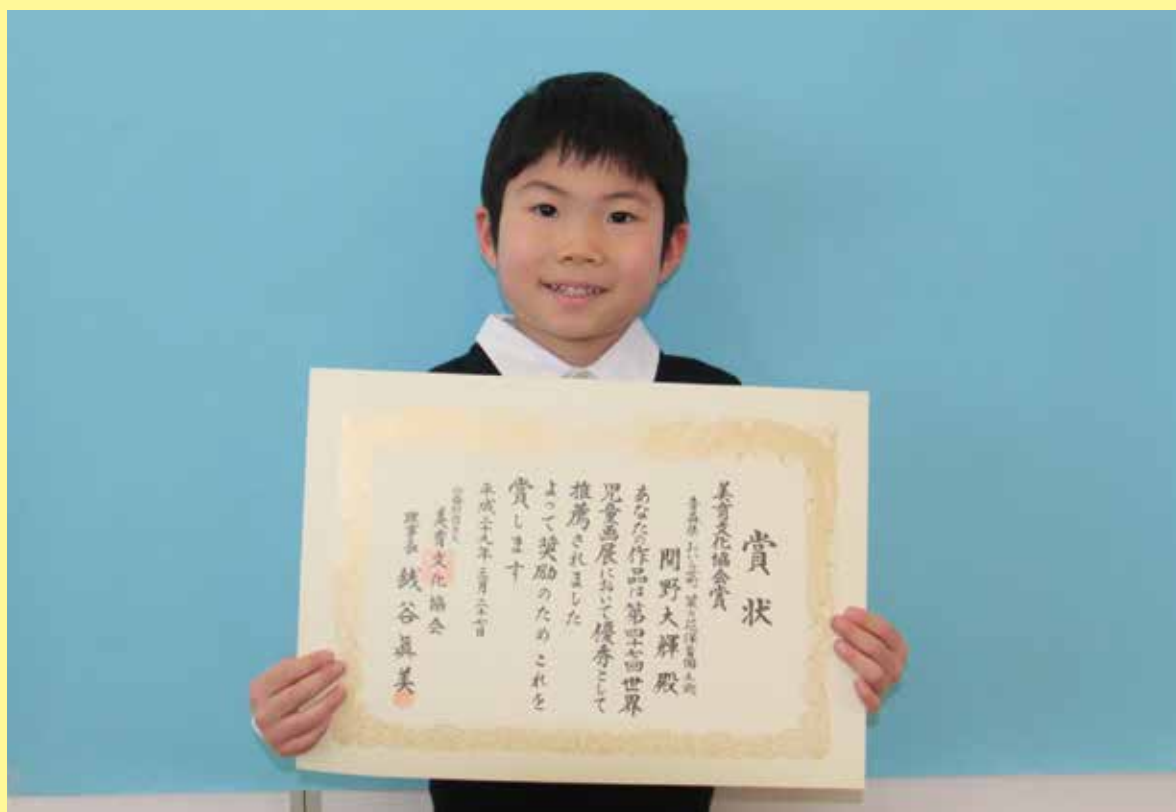 賞状
美育文化協会賞
青森県 おいらせ町 保育園 五歳
間野大輝 殿
あなたの作品は第四十七回世界
児童画展において優秀として
推薦されました
よって奨励のためこれを
賞します
平成二十九年 月二十七日
公益財団法人
美育文化協会
理事長 銭谷眞美